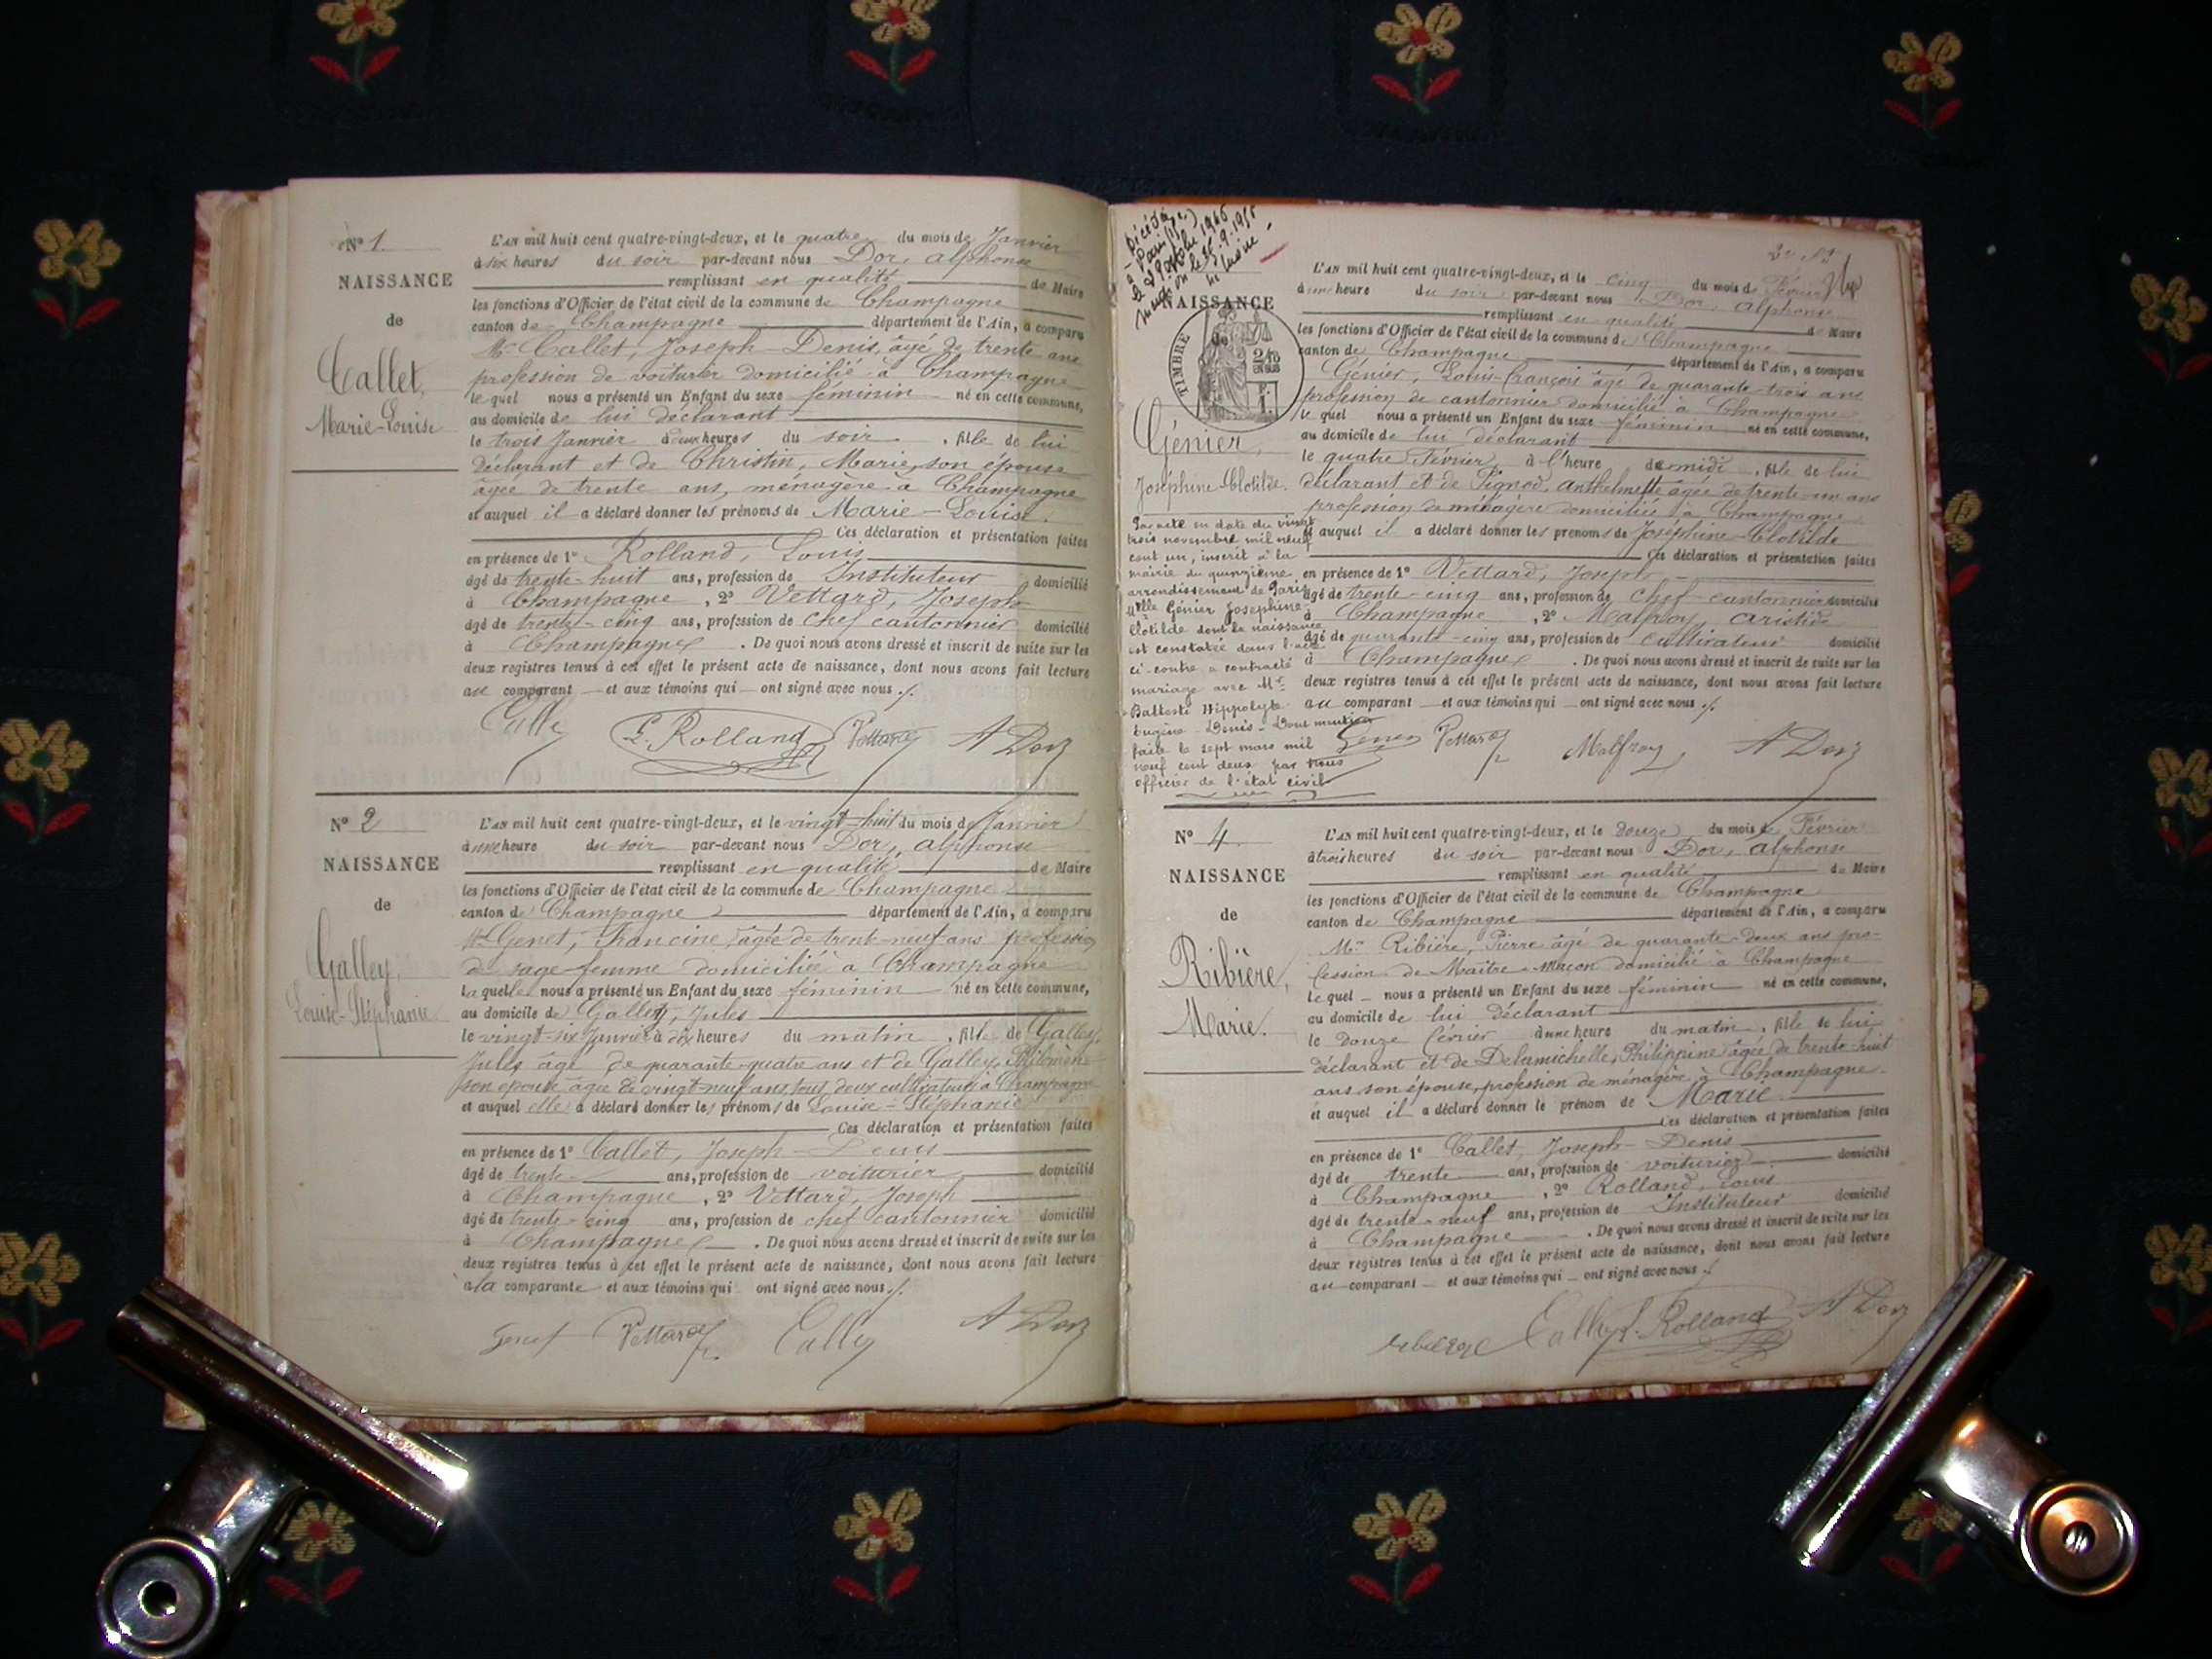 N° 1
NAISSANCE
de
Callet,
Marie-Louise
L'AN mil huit cent quatre-vingt-deux, et le quatre du mois de Janvier
à six heures du soir par-devant nous Dor, Alphonse
remplissant en qualité de Maire
les fonctions d'Officier de l'état civil de la commune de Champagne
canton de Champagne département de l'Ain, a comparu
Mr Callet, Joseph-Denis, âgé de trente ans
profession de voiturier domicilié à Champagne
lequel nous a présenté un Enfant du sexe féminin né en cette commune,
au domicile de lui déclarant
le trois Janvier à deux heures du soir, fille de lui
déclarant et de Christin, Marie, son épouse
âgée de trente ans, ménagère à Champagne
et auquel il a déclaré donner les prénoms de Marie-Louise.
Ces déclaration et présentation faites
en présence de 1° Rolland, Louis
âgé de trente-huit ans, profession de Instituteur domicilié
à Champagne, 2° Vettard, Joseph
âgé de trente-cinq ans, profession de chef cantonnier domicilié
à Champagne. De quoi nous avons dressé et inscrit de suite sur les
deux registres tenus à cet effet le présent acte de naissance, dont nous avons fait lecture
au comparant et aux témoins qui ont signé avec nous ./.
L. Rolland Vettard A Dor
N° 2
NAISSANCE
de
Galley,
Louise-Stéphanie
L'AN mil huit cent quatre-vingt-deux, et le vingt-huit du mois de Janvier
à une heure du soir par-devant nous Dor, Alphonse
remplissant en qualité de Maire
les fonctions d'Officier de l'état civil de la commune de Champagne
canton de Champagne département de l'Ain, a comparu
Genet, Francine, âgée de trente-neuf ans profession
de sage-femme domiciliée à Champagne
laquelle nous a présenté un Enfant du sexe féminin né en cette commune,
au domicile de Galley, Jules
le vingt-six Janvier à dix heures du matin, fille de Galley,
Jules âgé de quarante-quatre ans et de Galley, Philomène
son épouse âgée de vingt-neuf ans, tous deux cultivateurs à Champagne
et auquel elle a déclaré donner les prénoms de Louise-Stéphanie
Ces déclaration et présentation faites
en présence de 1° Callet, Joseph-Denis
âgé de trente ans, profession de voiturier domicilié
à Champagne, 2° Vettard, Joseph
âgé de trente-cinq ans, profession de chef cantonnier domicilié
à Champagne. De quoi nous avons dressé et inscrit de suite sur les
deux registres tenus à cet effet le présent acte de naissance, dont nous avons fait lecture
à la comparante et aux témoins qui ont signé avec nous ./.
Genet Vettard A Dor
Décédée
à Paris
le 29 octobre 1946
NAISSANCE
de
TIMBRE
Génier,
Joséphine-Clotilde.
Par acte en date du vingt
trois novembre mil neuf
cent un, inscrit à la
mairie du quinzième
arrondissement de Paris
Mlle Génier Joséphine-
Clotilde dont la naissance
est constatée dans l'acte
ci-contre a contracté
mariage avec Mr
Battesti Hippolyte
Eugène-Denis-Dont mention
faite le sept mars mil
neuf cent deux par nous
officier de l'état civil
L'AN mil huit cent quatre-vingt-deux, et le cinq du mois de Février
à une heure du soir par-devant nous Dor, Alphonse
remplissant en qualité de Maire
les fonctions d'Officier de l'état civil de la commune de Champagne
canton de Champagne département de l'Ain, a comparu
Génier, Louis-François âgé de quarante-trois ans
profession de cantonnier domicilié à Champagne
lequel nous a présenté un Enfant du sexe féminin né en cette commune,
au domicile de lui déclarant
le quatre Février à l'heure de midi, fille de lui
déclarant et de Pignod, Anthelmette âgée de trente-un ans
profession de ménagère domiciliée à Champagne
et auquel il a déclaré donner les prénoms de Joséphine-Clotilde
Ces déclaration et présentation faites
en présence de 1° Vettard, Joseph
âgé de trente-cinq ans, profession de chef-cantonnier domicilié
à Champagne, 2° Malfroy, Aristide
âgé de quarante-cinq ans, profession de cultivateur domicilié
à Champagne. De quoi nous avons dressé et inscrit de suite sur les
deux registres tenus à cet effet le présent acte de naissance, dont nous avons fait lecture
au comparant et aux témoins qui ont signé avec nous ./.
Vettard Malfroy A Dor
N° 4
NAISSANCE
de
Ribière,
Marie.
L'AN mil huit cent quatre-vingt-deux, et le douze du mois de Février
à trois heures du soir par-devant nous Dor, Alphonse
remplissant en qualité de Maire
les fonctions d'Officier de l'état civil de la commune de Champagne
canton de Champagne département de l'Ain, a comparu
Mr Ribière, Pierre âgé de quarante-deux ans pro-
fession de Maître-maçon domicilié à Champagne
lequel nous a présenté un Enfant du sexe féminin né en cette commune,
au domicile de lui déclarant
le douze février à une heure du matin, fille de lui
déclarant et de Delamichelle, Philippine âgée de trente-huit
ans son épouse, profession de ménagère à Champagne.
et auquel il a déclaré donner le prénom de Marie
Ces déclaration et présentation faites
en présence de 1° Callet, Joseph-Denis
âgé de trente ans, profession de voiturier domicilié
à Champagne, 2° Rolland, Louis
âgé de trente-neuf ans, profession de Instituteur domicilié
à Champagne. De quoi nous avons dressé et inscrit de suite sur les
deux registres tenus à cet effet le présent acte de naissance, dont nous avons fait lecture
au comparant et aux témoins qui ont signé avec nous ./.
L. Rolland A Dor